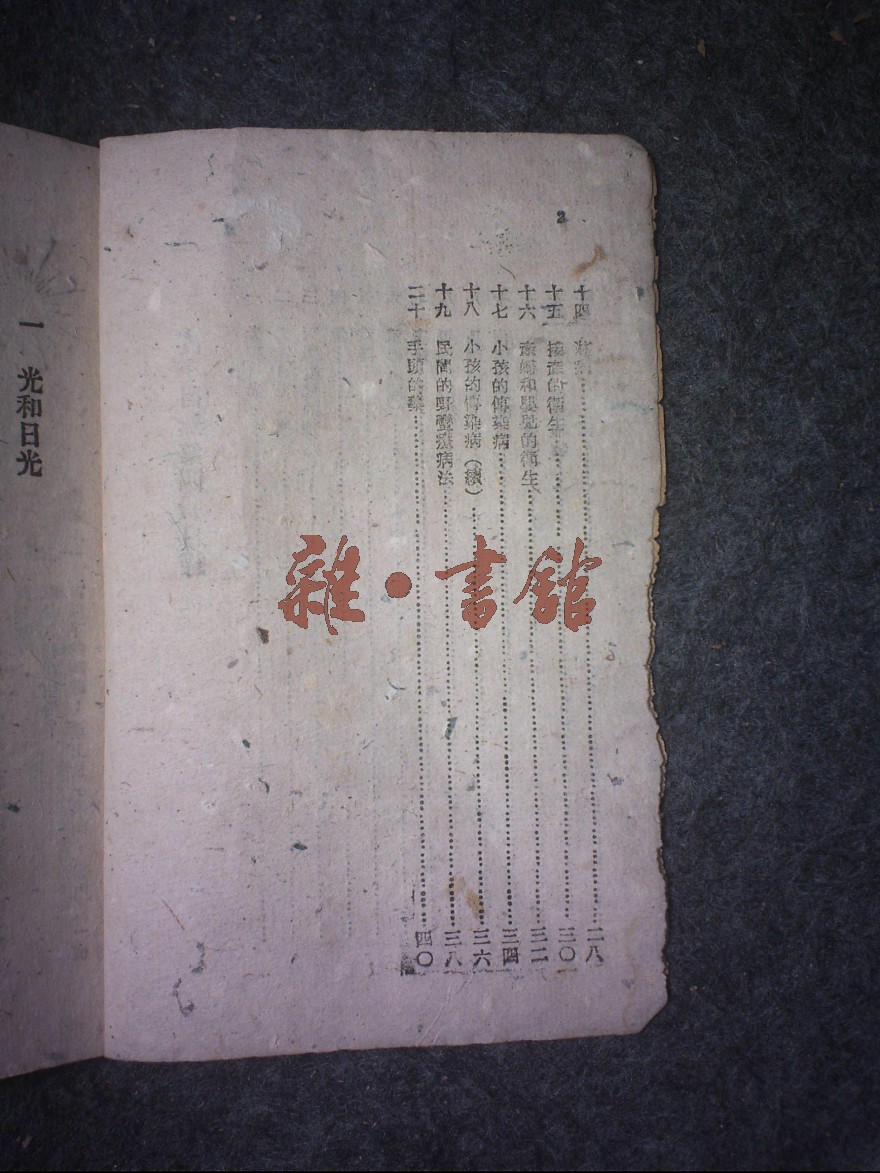 2
十四
十五 接產的衞生 三〇
十六 產婦和嬰兒的衞生 三二
十七 小孩的傳染病 三四
十八 小孩的傳染病（續） 三六
十九 民間的野蠻療病法 三八
二十 手頭的藥 四〇
二八
一 光和日光
雜·書舘